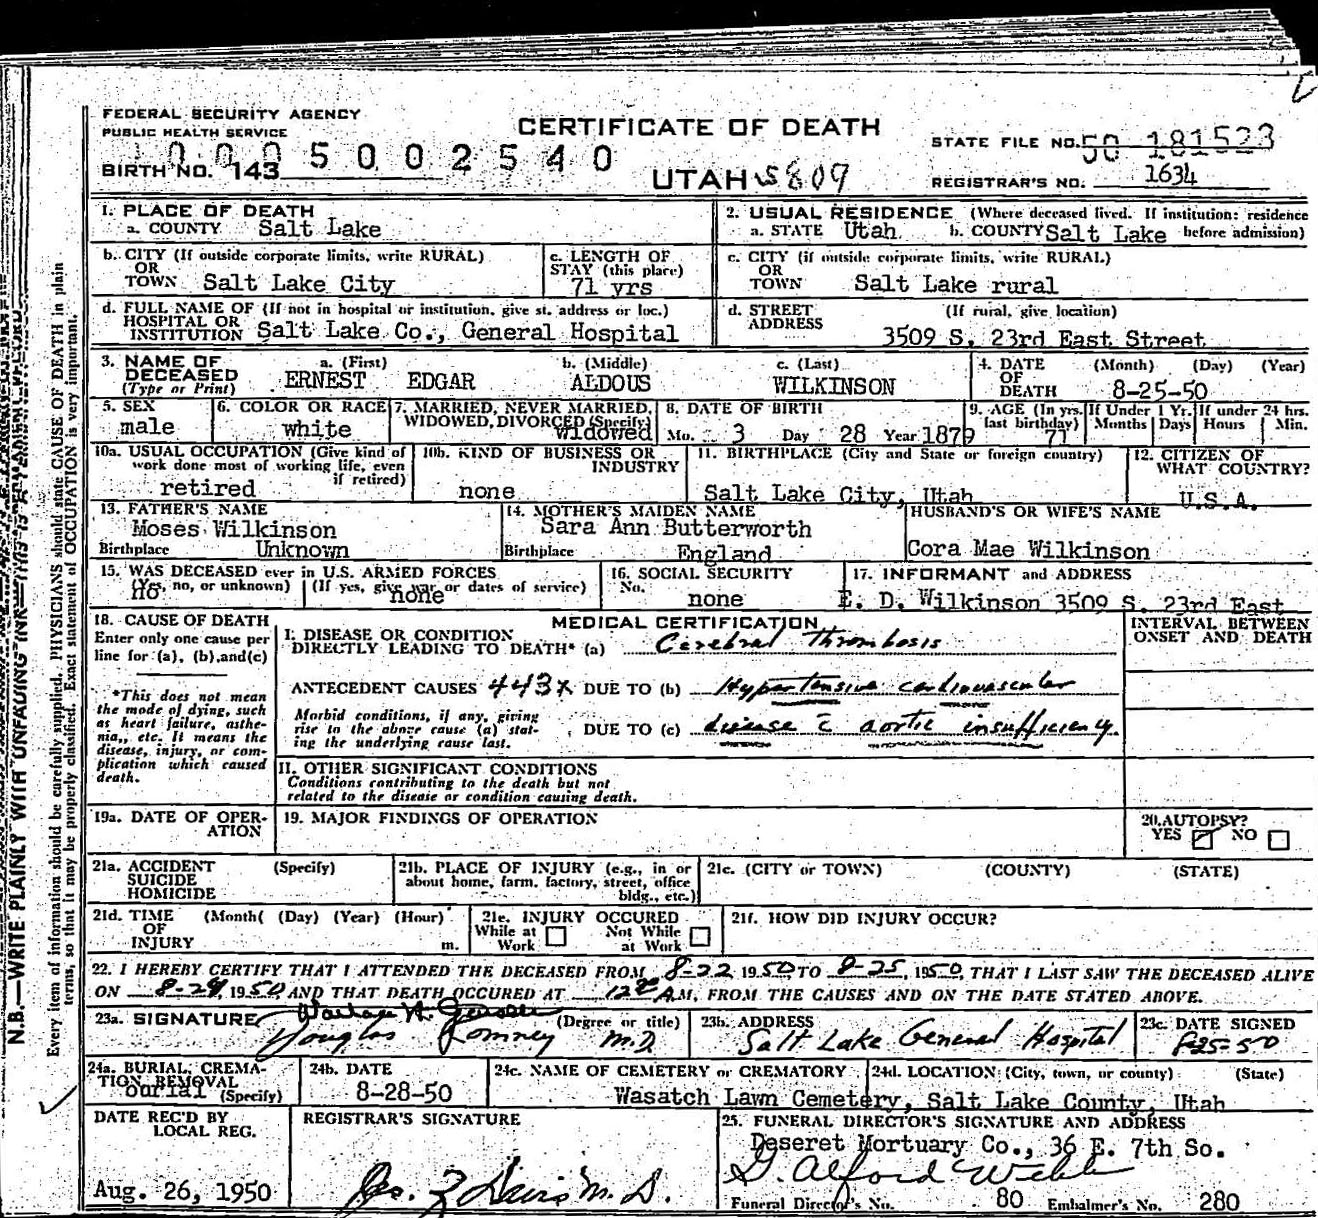 FEDERAL SECURITY AGENCY
PUBLIC HEALTH SERVICE
CERTIFICATE OF DEATH
STATE FILE NO. 50 181523
10005002540
BIRTH NO. 143
UTAH 5809
REGISTRAR'S NO. 1634
1. PLACE OF DEATH
a. COUNTY Salt Lake
2. USUAL RESIDENCE (Where deceased lived. If institution: residence before admission)
a. STATE Utah b. COUNTY Salt Lake
b. CITY (If outside corporate limits, write RURAL)
OR
TOWN Salt Lake City
c. LENGTH OF
STAY (this place)
71 yrs
c. CITY (if outside corporate limits, write RURAL)
OR
TOWN Salt Lake rural
d. FULL NAME OF (If not in hospital or institution, give st. address or loc.)
HOSPITAL OR
INSTITUTION Salt Lake Co., General Hospital
d. STREET (If rural, give location)
ADDRESS 3509 S. 23rd East Street
3. NAME OF DECEASED
(Type or Print)
a. (First) b. (Middle) c. (Last)
ERNEST EDGAR ALDOUS WILKINSON
4. DATE OF DEATH (Month) (Day) (Year)
8-25-50
5. SEX
male
6. COLOR OR RACE
white
7. MARRIED, NEVER MARRIED,
WIDOWED, DIVORCED (Specify)
widowed
8. DATE OF BIRTH
Mo. 3 Day 28 Year 1879
9. AGE (In yrs. last birthday) 71
If Under 1 Yr. Months Days
If under 24 hrs. Hours Min.
10a. USUAL OCCUPATION (Give kind of
work done most of working life, even
if retired)
retired
10b. KIND OF BUSINESS OR
INDUSTRY
none
11. BIRTHPLACE (City and State or foreign country)
Salt Lake City, Utah
12. CITIZEN OF
WHAT COUNTRY?
U.S.A.
13. FATHER'S NAME
Moses Wilkinson
Birthplace Unknown
14. MOTHER'S MAIDEN NAME
Sara Ann Butterworth
Birthplace England
HUSBAND'S OR WIFE'S NAME
Cora Mae Wilkinson
15. WAS DECEASED ever in U.S. ARMED FORCES
(Yes, no, or unknown) (If yes, give war or dates of service)
no none
16. SOCIAL SECURITY
No. none
17. INFORMANT and ADDRESS
E. D. Wilkinson 3509 S. 23rd East
18. CAUSE OF DEATH
Enter only one cause per
line for (a), (b), and (c)
*This does not mean
the mode of dying, such
as heart failure, asthe-
nia, etc. It means the
disease, injury, or com-
plication which caused
death.
MEDICAL CERTIFICATION
INTERVAL BETWEEN
ONSET AND DEATH
I. DISEASE OR CONDITION
DIRECTLY LEADING TO DEATH* (a) Cerebral thrombosis
ANTECEDENT CAUSES 443X DUE TO (b) Hypertensive cardiovascular
Morbid conditions, if any, giving
rise to the above cause (a) stat-
ing the underlying cause last.
DUE TO (c) disease c̄ aortic insufficiency.
II. OTHER SIGNIFICANT CONDITIONS
Conditions contributing to the death but not
related to the disease or condition causing death.
19a. DATE OF OPER-
ATION
19. MAJOR FINDINGS OF OPERATION
20. AUTOPSY?
YES NO
21a. ACCIDENT (Specify)
SUICIDE
HOMICIDE
21b. PLACE OF INJURY (e.g., in or
about home, farm, factory, street, office
bldg., etc.)
21c. (CITY or TOWN) (COUNTY) (STATE)
21d. TIME (Month( (Day) (Year) (Hour)
OF
INJURY m.
21e. INJURY OCCURED
While at Work Not While at Work
21f. HOW DID INJURY OCCUR?
22. I HEREBY CERTIFY THAT I ATTENDED THE DECEASED FROM 8-22, 1950 TO 8-25, 1950, THAT I LAST SAW THE DECEASED ALIVE
ON 8-24, 1950 AND THAT DEATH OCCURED AT A.M., FROM THE CAUSES AND ON THE DATE STATED ABOVE.
23a. SIGNATURE (Degree or title)
Douglas Romney M.D.
23b. ADDRESS
Salt Lake General Hospital
23c. DATE SIGNED
8-25-50
24a. BURIAL, CREMA-
TION, REMOVAL
(Specify)
burial
24b. DATE
8-28-50
24c. NAME OF CEMETERY or CREMATORY 24d. LOCATION (City, town, or county) (State)
Wasatch Lawn Cemetery, Salt Lake County, Utah
DATE REC'D BY
LOCAL REG.
Aug. 26, 1950
REGISTRAR'S SIGNATURE
Davis M.D.
25. FUNERAL DIRECTOR'S SIGNATURE AND ADDRESS
Deseret Mortuary Co., 36 E. 7th So.
D. Alford Webb
Funeral Director's No. 80 Embalmer's No. 280
N.B.—WRITE PLAINLY WITH UNFADING INK—THIS IS PERMANENT RECORD
Every item of information should be carefully supplied. PHYSICIANS should state CAUSE OF DEATH in plain
terms, so that it may be properly classified. Exact statement of OCCUPATION is very important.